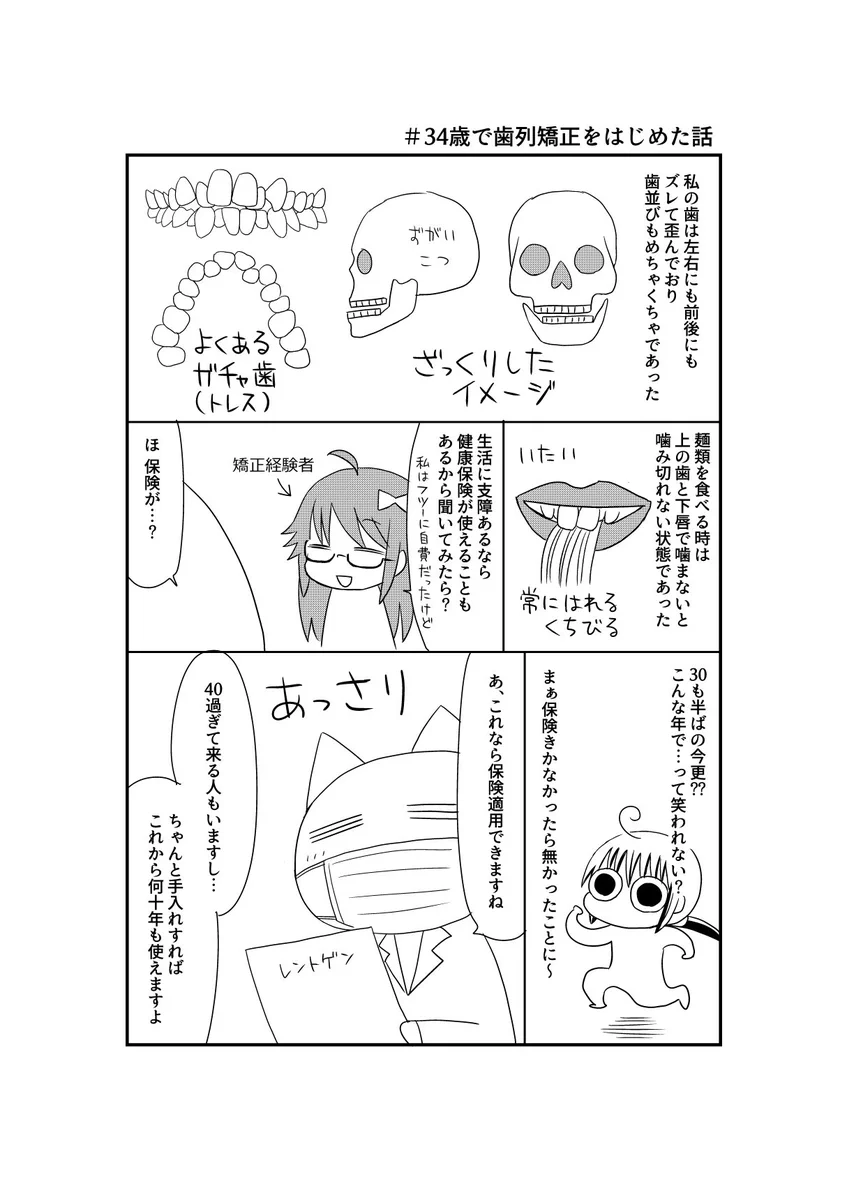 #34歳で歯列矯正をはじめた話
私の歯は左右にも前後にも
ズレて歪んでおり
歯並びもめちゃくちゃであった
ずがい
こつ
ざっくりした
イメージ
よくある
ガチャ歯
(トレス)
麺類を食べる時は
上の歯と下唇で噛まないと
噛み切れない状態であった
いたい
常にはれる
くちびる
生活に支障あるなら
健康保険が使えることも
あるから聞いてみたら?
私はフツーに自費だったけど
矯正経験者
ほ 保険が…?
30も半ばの今更??
こんな年で…って笑われない?
まぁ保険きかなかったら無かったことに~
あ、これなら保険適用できますね
あっさり
レントゲン
40過ぎて来る人もいますし…
ちゃんと手入れすれば
これから何十年も使えますよ